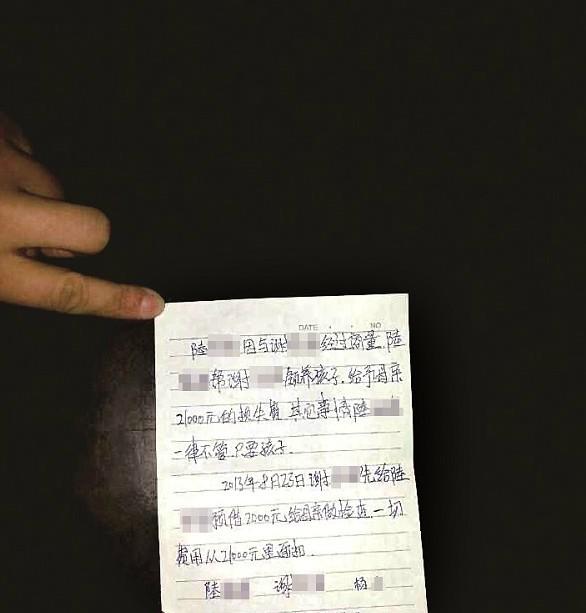 DATE · · NO
陆 因与谢 经过商量.陆
帮谢 领养孩子.给予母亲
21000元的损失费 其它事情陆
一律不管.只要孩子.
2013年8月23日谢 先给陆
预借2000元给母亲做检查.一切
费用从21000元里面扣.
陆 谢 杨